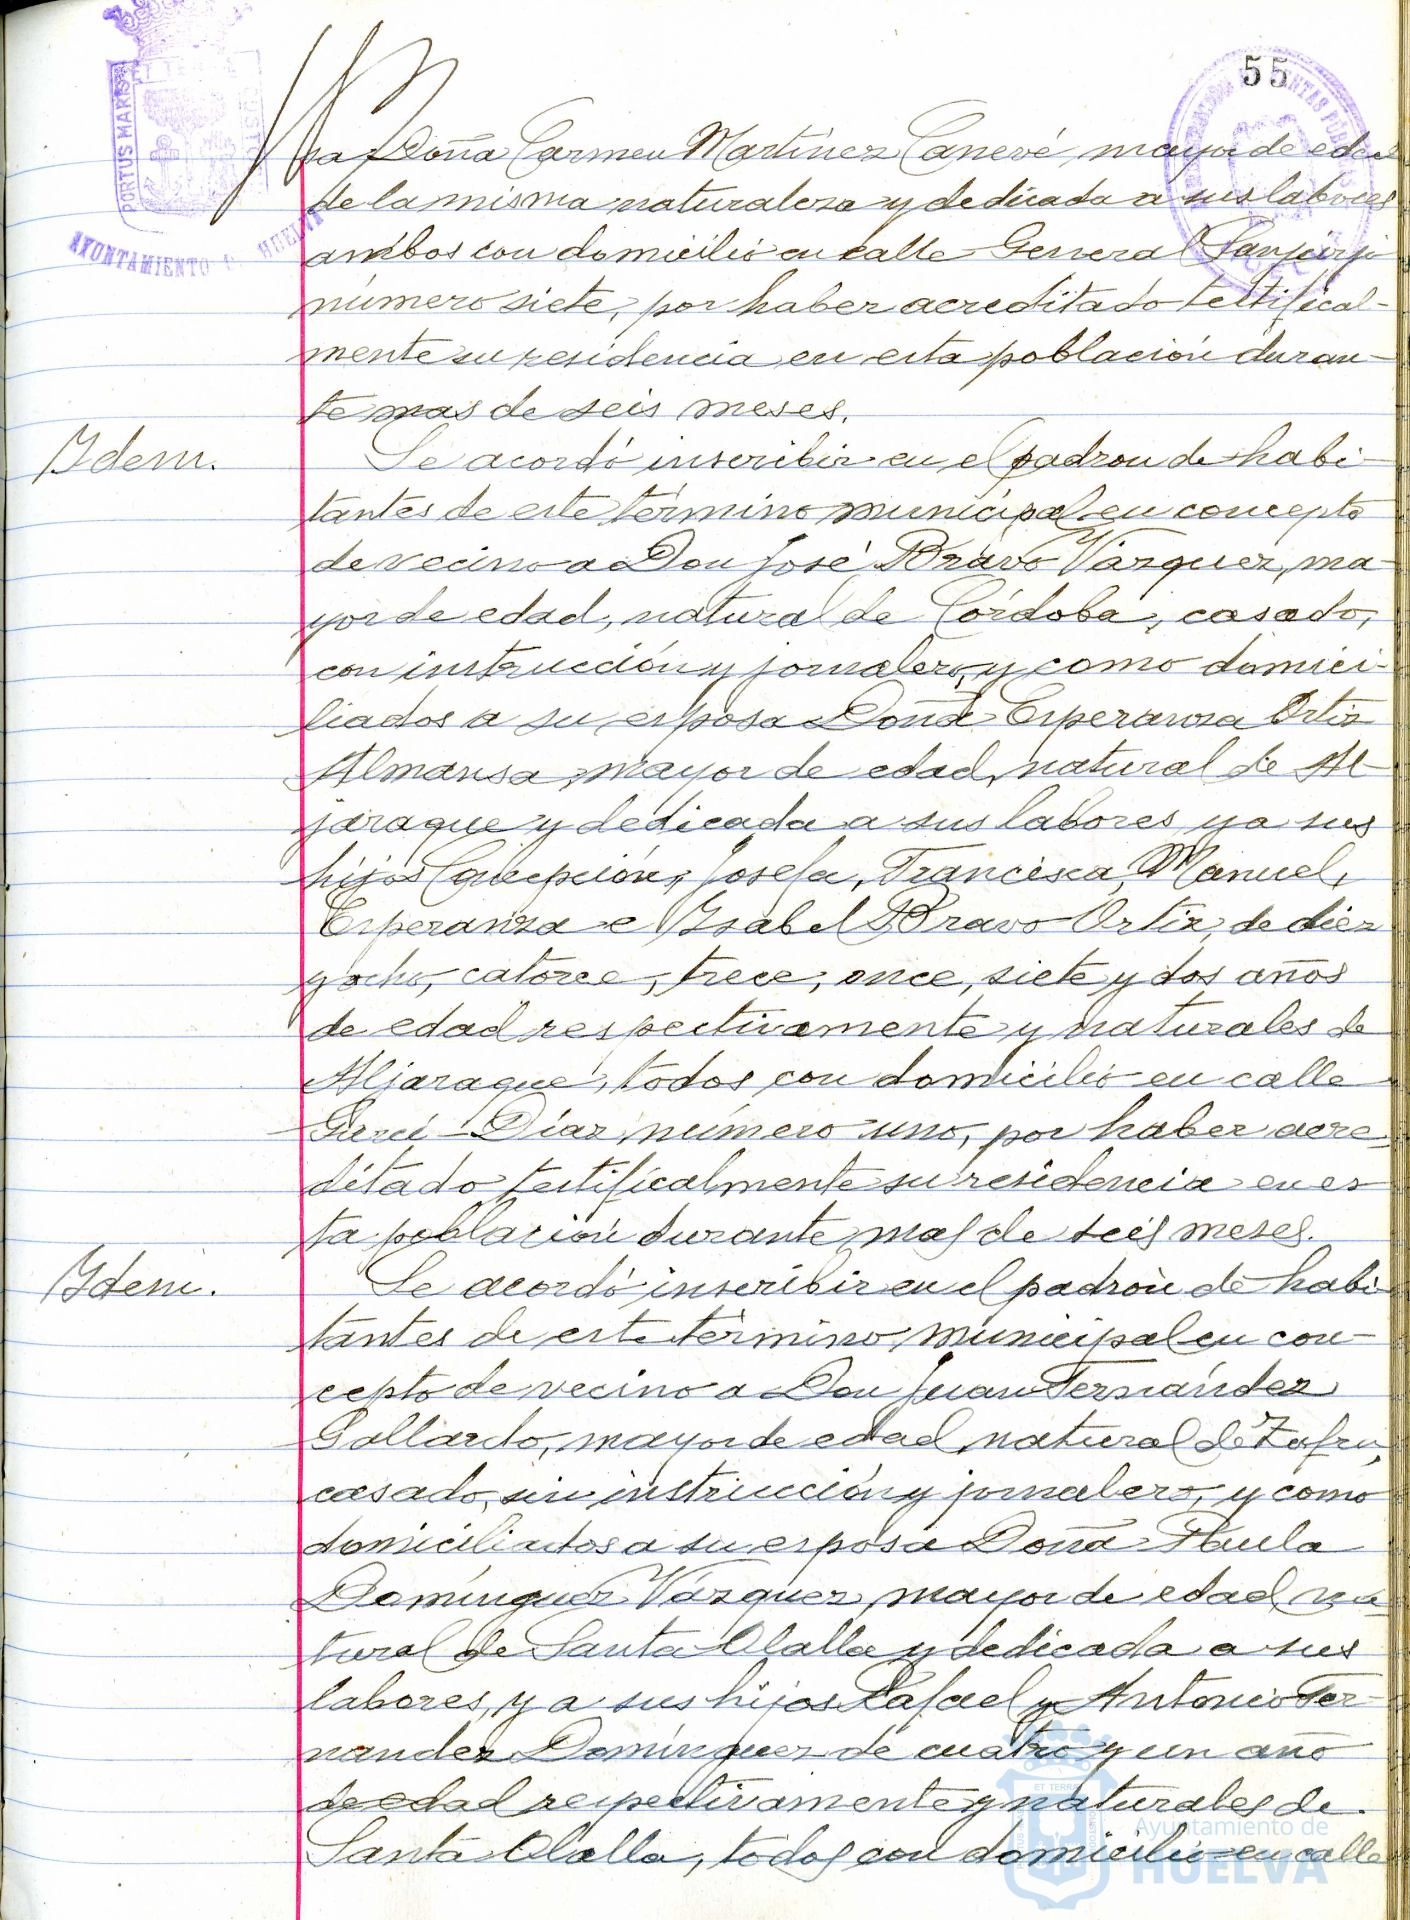 55
PORTUS MARIS
ET TERRE
CUSTO
AYUNTAMIENTO DE HUELVA
sa Doña Carmen Martínez Canevé, mayor de edad
de la misma naturaleza y dedicada a sus labores
ambos con domicilio en calle General Sanjurjo
número siete, por haber acreditado testifical-
mente su residencia en esta población duran-
te mas de seis meses.
Idem.
Se acordó inscribir en el padron de habi-
tantes de este término municipal en concepto
de vecino a Don José Bravo Vázquez, ma-
yor de edad, natural de Córdoba, casado,
con instrucción y jornalero, y como domici-
liados a su esposa Doña Esperanza Ortiz
Almansa, mayor de edad, natural de Al-
jaraque y dedicada a sus labores y a sus
hijos Concepción, Josefa, Francisca, Manuel,
Esperanza e Isabel Bravo Ortiz, de diez
y ocho, catorce, trece, once, siete y dos años
de edad respectivamente y naturales de
Aljaraque, todos con domicilio en calle
Garci-Díaz número uno, por haber acre-
ditado testificalmente su residencia en es-
ta población durante mas de seis meses.
Idem.
Se acordó inscribir en el padrón de habi-
tantes de este término municipal en con-
cepto de vecino a Don Juan Fernández
Gallardo, mayor de edad, natural de Zafra,
casado, sin instrucción y jornalero, y como
domiciliados a su esposa Doña Paula
Domínguez Vázquez, mayor de edad, na-
tural de Santa Olalla y dedicada a sus
labores, y a sus hijos Rafael y Antonio Fer-
nandez Domínguez de cuatro y un año
de edad respectivamente y naturales de
Santa Olalla, todos con domicilio en calle
ET TERRA
Ayuntamiento de
HUELVA